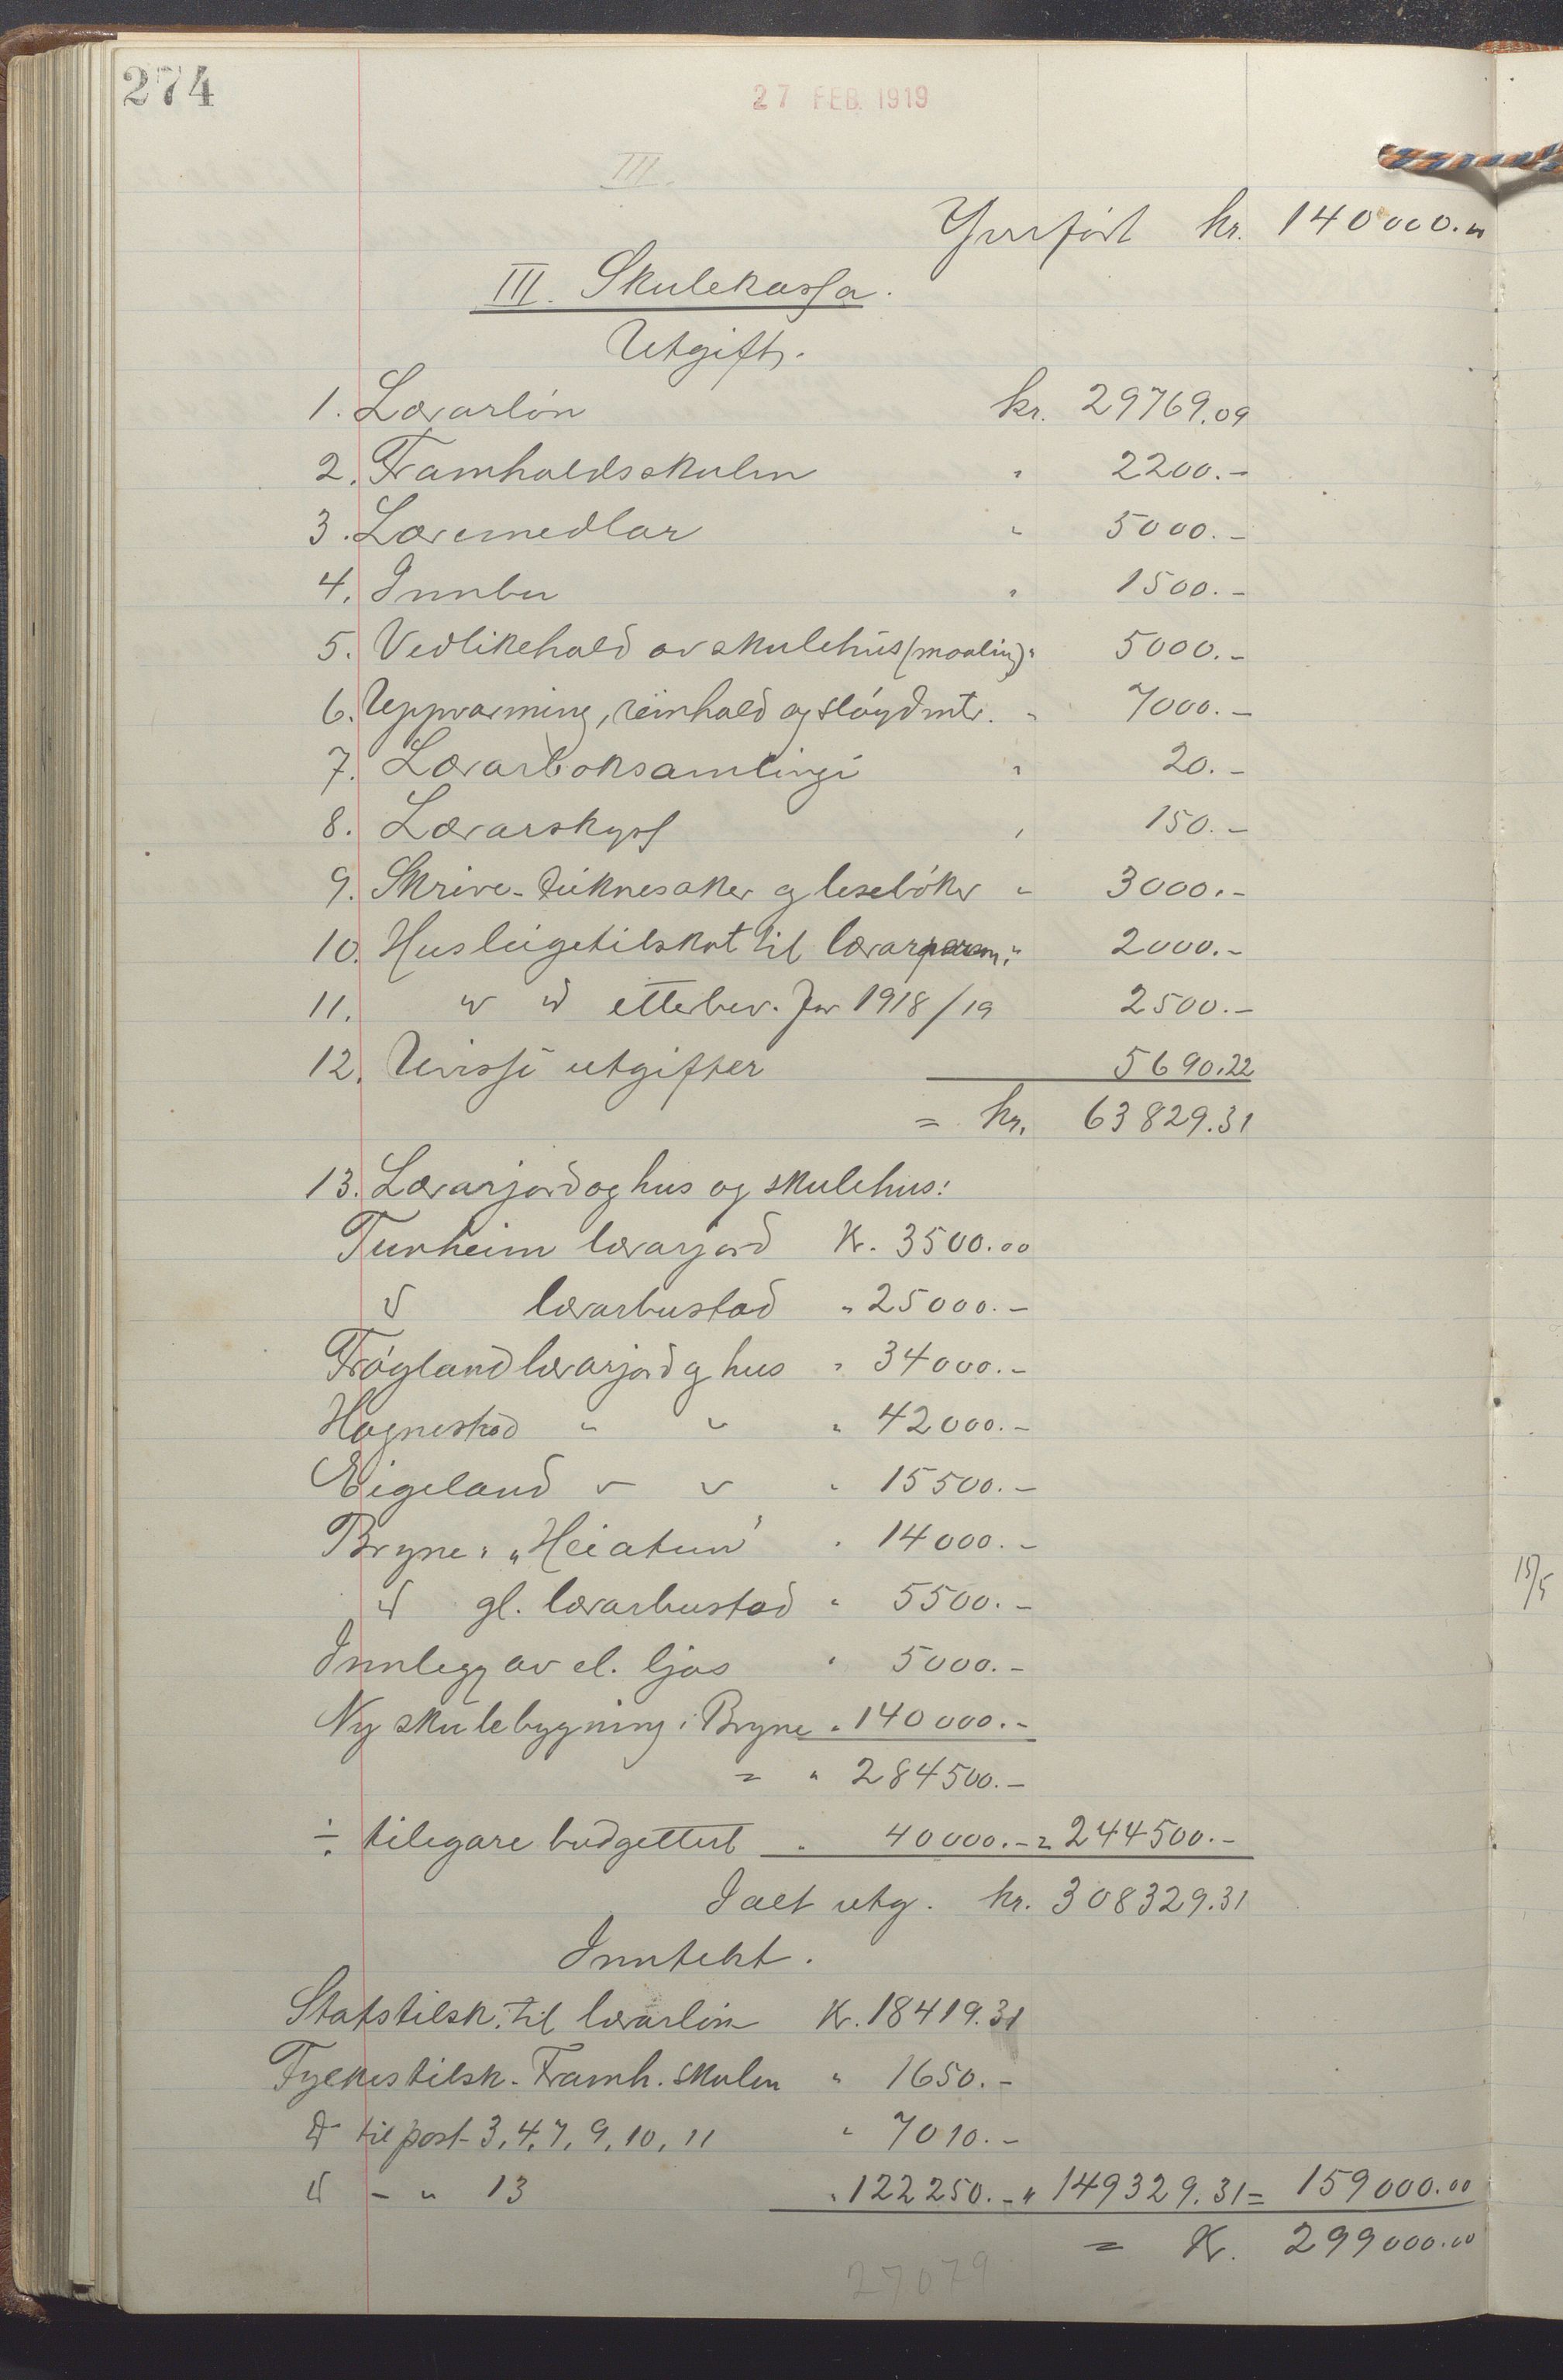 274
27 FEB. 1919
III.
Yverført kr. 140000.00
III. Skulekassa.
Utgift.
1. Lærarløn kr. 29769.09
2. Framhaldsskulen " 2200.-
3. Læremedlar " 5000.-
4. Innbu " 1500.-
5. Vedlikehald av skulehus (maaling) " 5000.-
6. Uppvarming, reinhald og sløydmtr. " 7000.-
7. Lærarboksamlingi " 20.-
8. Lærarskyss " 150.-
9. Skrive- teiknesaker og lesebøker " 3000.-
10. Husleigetilskot til lærarpersn. " 2000.-
11. " d etterbev. for 1918/19 2500.-
12. Uvisse utgifter 5690.22
= kr. 63829.31
13. Lærarjord og hus og skulehus:
Tunheim lærarjord Kr. 3500.00
d lærarbustad " 25000.-
Frøyland lærarjord og hus " 34000.-
Hognestad " " " 42000.-
Eigeland " " " 15500.-
Bryne: "Heiatun" " 14000.-
d gl. lærarbustad " 5500.-
Innlegg av el. ljos " 5000.-
Ny skulebygning i Bryne " 140000.-
= " 284500.-
÷ tilegare budgettert " 40000.- = 244500.-
I alt utg. kr. 308329.31
Inntekt.
Statstilsk. til lærarløn Kr. 18419.31
Fylkestilsk. Framh. skulen " 1650.-
d til post 3, 4, 7, 9, 10, 11 " 7010.-
d - " 13 " 122250.- " 149329.31 = 159000.00
= Kr. 299000.00
27079
15/5